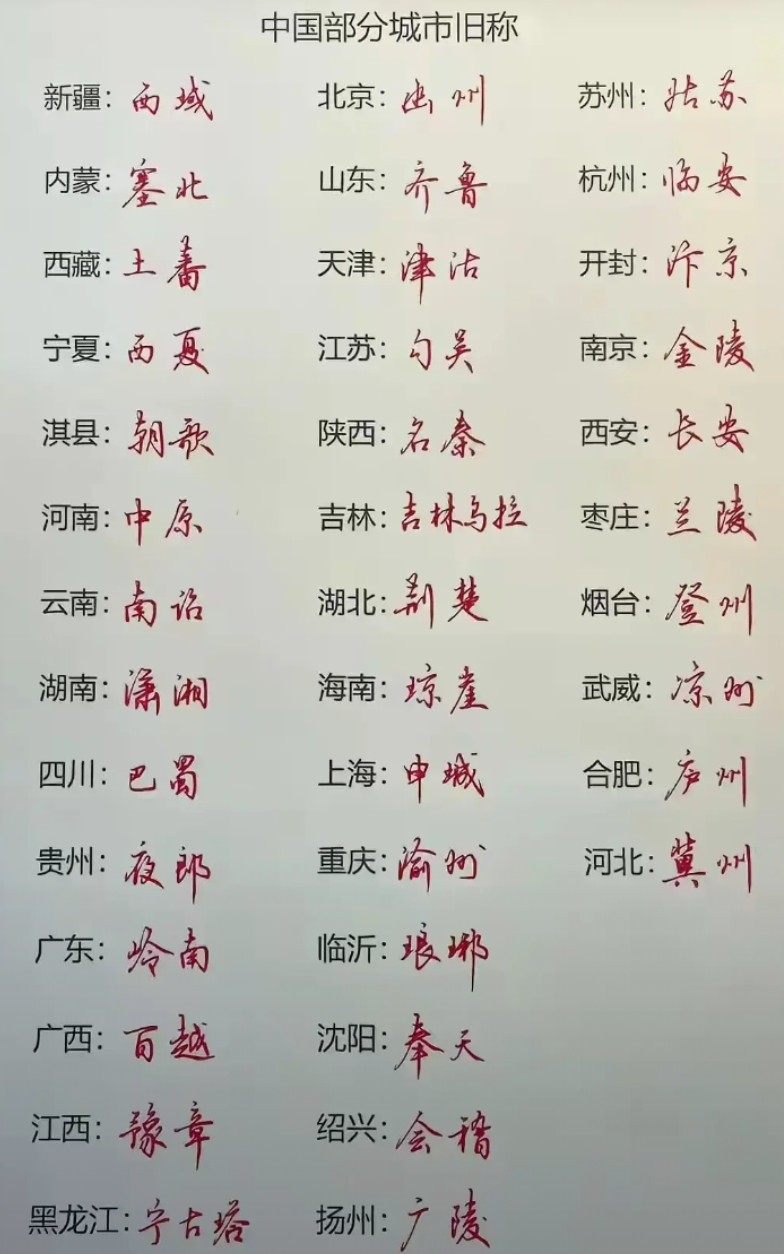 中国部分城市旧称
新疆：西域 北京：幽州 苏州：姑苏
内蒙：塞北 山东：齐鲁 杭州：临安
西藏：土蕃 天津：津沽 开封：汴京
宁夏：西夏 江苏：勾吴 南京：金陵
淇县：朝歌 陕西：名秦 西安：长安
河南：中原 吉林：吉林乌拉 枣庄：兰陵
云南：南诏 湖北：荆楚 烟台：登州
湖南：潇湘 海南：琼崖 武威：凉州
四川：巴蜀 上海：申城 合肥：庐州
贵州：夜郎 重庆：渝州 河北：冀州
广东：岭南 临沂：琅琊
广西：百越 沈阳：奉天
江西：豫章 绍兴：会稽
黑龙江：宁古塔 扬州：广陵